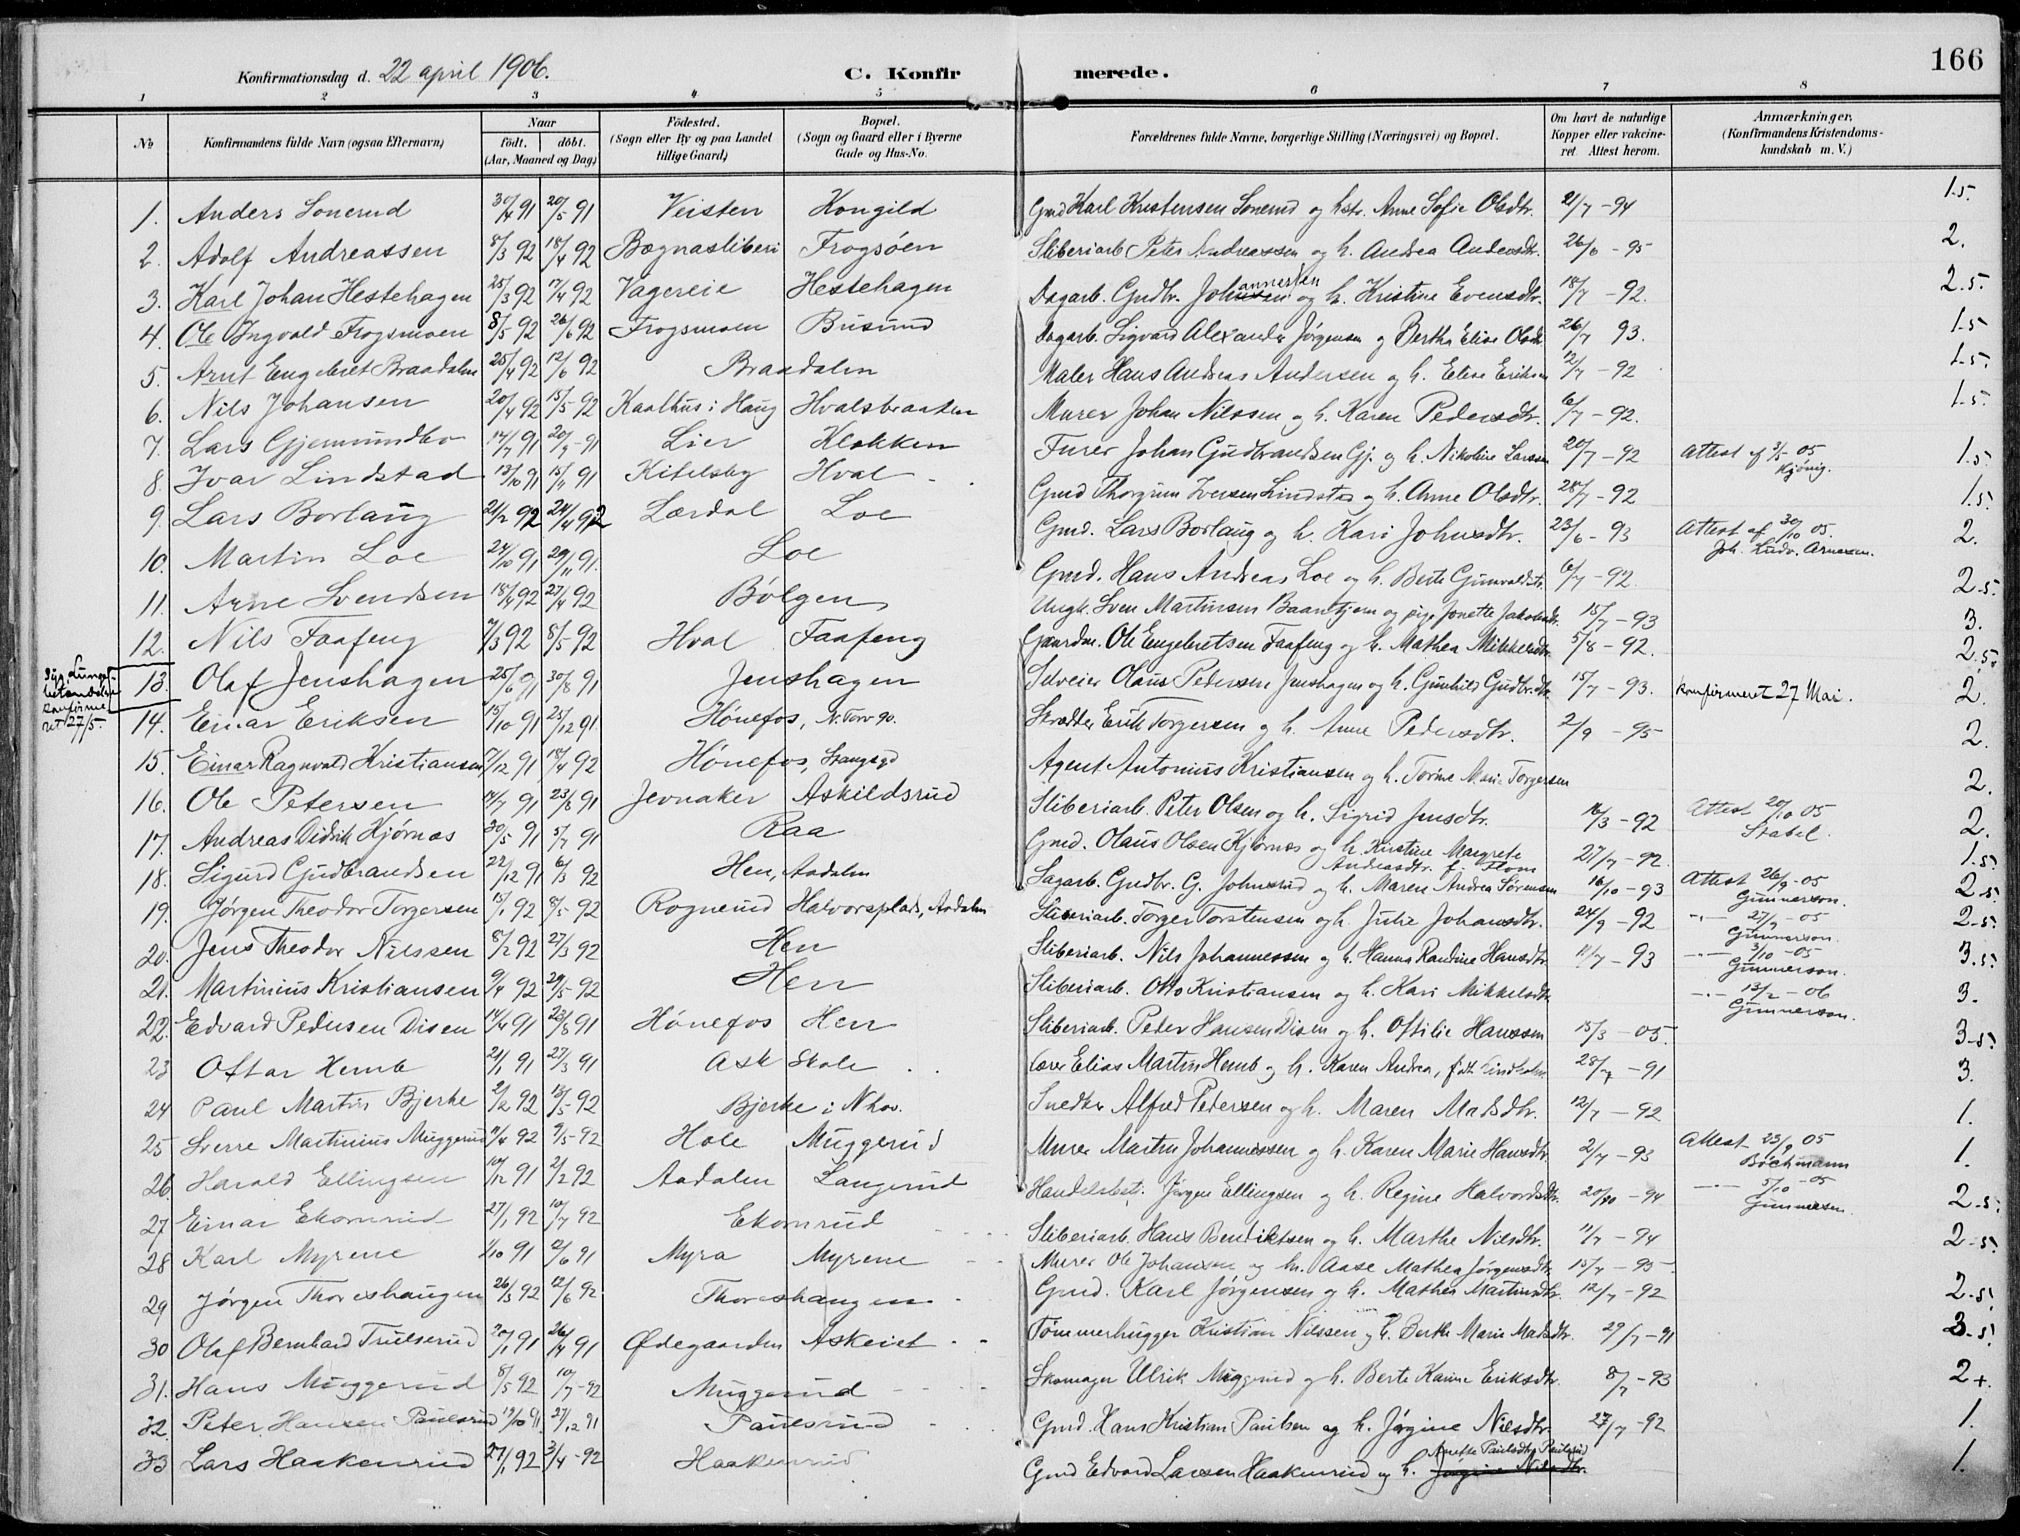 166
Konfirmationsdag d. 22 april 1906.
C. Konfirmerede.
1 2 3 4 5 6 7 8
No
Konfirmandens fulde Navn (ogsaa Efternavn)
Naar
født. døbt.
(Aar, Maaned og Dag)
Fødested.
(Sogn eller By og paa Landet
tillige Gaard)
Bopæl.
(Sogn og Gaard eller i Byerne
Gade og Hus-No.
Forældrenes fulde Navne, borgerlige Stilling (Næringsvei) og Bopæl.
Om havt de naturlige
Kopper eller vakcine-
ret. Attest herom.
Anmærkninger.
(Konfirmandens Kristendoms-
kundskab m. V.)
1. Anders Sonerud 30/4 91 20/5 91 Veisten Kongild Gmd Karl Kristensen Sonerud og hstr. Anne Sofie Olsdtr. 21/7 -94 1.5.
2. Adolf Andreassen 8/3 92 18/4 92 Bægnasliberi Frogsøen Sliberiarb. Peter Andreassen og h. Andrea Andersdtr. 26/6 -95 2.
3. Karl Johan Hestehagen 25/3 92 17/4 92 Vagereie Hestehagen Dagarb. Gudbr. Johannersen og h. Kristine Evensdtr. 18/7 -92. 2.5.
4. Ole Ingvald Frogsmoen 8/5 92 26/6 92 Frogsmoen Busund Dagarb. Sigvard Alexander Jørgensen og Bertha Elise Olsdtr. 26/7 93. 1.5
5. Arnt Engebret Braadalen 25/4 92 12/6 92 Braadalen Maler Hans Andreas Andersen og h. Elise Eriksen 12/7 -92 1.5.
6. Nils Johansen 20/4 92 15/5 -92 Kaalhus i Haug Hvalsbraaten Murer Johan Nilssen og h. Karen Pedersdtr. 6/7 -92. 1.5.
7. Lars Gjermundbo 14/7 91 20/9 -91 Lier Klækken Furer Johan Gudbrandsen Gj. og h. Nikoline Larssen 20/7 -92 Attest af 3/5 05 1.5.
Kjønig.
8. Ivar Lindstad 13/10 91 15/11 91 Kitelsby Hval Gmd Thorgrim Iversen Lindstad og h. Anne Olsdtr. 28/7 -92 1.5.
9. Lars Borlaug 21/2 92 24/4 92 Lærdal Loe Gmd. Lars Borlaug og h. Kari Johnsdtr. 23/6 -93 Attest af 30/10 05. 2.
Joh. Ludv. Arnesen.
10. Martin Loe 24/10 91 29/11 91. Loe Gmd. Hans Andreas Loe og h. Berte Gunvaldsdtr. 6/7 -92. 2.5.
11. Arne Svendsen 18/4 92 27/4 92 Bølgen Ungk. Sven Martinsen Baarntjern og pige Jonette Jakobsdtr. 15/7 -93 3.
12. Nils Faafeng 7/3 92 8/5 92 Hval Faafeng Gaardm. Ole Engebretsen Faafeng og h. Mathea Mikkelsdtr. 5/8 -92. 2.5.
syg, Lunge-
betændelse
konfirme-
ret 27/5.
13. Olaf Jenshagen 25/6 91 30/8 91 Jenshagen Selveier Olaus Petersen Jenshagen og h. Gunhild Gudbr.dtr. 15/7 -93. konfirmeret 27 Mai. 2.
14. Einar Eriksen 15/10 91 25/12 91. Hønefos, N. Torv 90. Skrædder Erik Torgersen og h. Anne Pedersdtr. 2/9 -95 2.
15. Einar Ragnvald Kristiansen 17/12 91 18/4 92 Hønefos, Stangsgd Agent Antonius Kristiansen og h. Torine Marie Torgersen 2.
16. Ole Petersen 14/7 91 23/8 91 Jevnaker Askildsrud Sliberiarb. Peter Olsen og h. Sigrid Jensdtr. 16/3 -92 Attest 20/10 05 2.
Stabel.
17. Andreas Didrik Kjørnæs 30/5 91 5/7 91 Raa Gmd. Olaus Olsen Kjørnæs og h. Kristine Margrete 27/7 -92. 1.5.
Andreasdtr. f. Flom
18. Sigurd Gudbrandsen 22/12 91 6/3 92 Hen, Aadalen Sagarb. Gudbr. G. Johnsrud og h. Maren Andrea Sørensen 16/10 -93 Attest 26/9 -05 2.5.
Gunnerson.
19. Jørgen Theodor Torgersen 15/1 92 8/5 -92 Rognerud Halvorsplads, Aadalen Sliberiarb. Torger Torstensen og h. Julie Johansdtr. 24/9 -92 -"- 27/9 -05 2.5.
Gunnerson.
20. Jens Theodor Nilssen 8/2 92 27/3 92 Hen Sliberiarb. Nils Johannessen og h. Hanna Randine Hansdtr. 11/7 -93 -"- 3/10 -05 3.5.
Gunnerson.
21. Martinius Kristiansen 9/4 92 29/5 -92 Hen Sliberiarb. Otto Kristiansen og h. Kari Mikkelsdtr. -"- 13/2 -06 3.
Gunnerson.
22. Edvard Pedersen Disen 14/4 91 23/8 91 Hønefos Hen Sliberiarb. Peder Hansen Disen og h. Ottilie Hanssen 15/3 -05. 3.5.
23 Oftar Hemb 21/1 91 27/3 91 Ask Skole Lærer Elias Martin Hemb og h. Karen Andrea, født Lindholm 28/7 -91 3.
24 Paul Martin Bjerke 2/2 92 15/5 -92 Bjerke i Nhov. Snedker Alfred Pedersen og h. Maren Madsdtr. 12/7 -92 1.
25 Sverre Martinius Muggerud 11/4 92 9/5 -92 Hole Muggerud Murer Martin Johannessen og h. Karen Marie Hansdtr. 2/7 -93 Attest 23/9 05 1.
Böchmann
26. Harald Ellingsen 10/12 91 21/2 92 Aadalen Langerud Handelsbest. Jørgen Ellingsen og h. Regine Halvorsdtr. 20/10 -94 -"- 5/10 -05 2.5.
Gunnersen.
27 Einar Ekornrud 27/1 92 10/7 92 Ekornrud Sliberiarb. Hans Bendiktsen og h. Marthe Nilsdtr. 11/7 -94 2.5.
28 Karl Myrene 1/10 91 12/6 91 Myra Myrene Murer Ole Johansen og h. Aase Mathea Jørgensdtr. 15/7 -95
29 Jørgen Thoreshaugen 26/3 92 12/6 92 Thoreshaugen Gmd. Karl Jørgensen og h. Mathea Martinsdtr. 12/7 -92 2.5.
30 Olaf Bernhard Trulserud 20/1 91 26/4 91 Ødegaarden Askeiet Tømmerhugger Kristian Nilssen og h. Berthe Marie Madsdtr. 29/7 -91 3.5.
31. Hans Muggerud 8/5 92 10/7 -92 Muggerud Skomager Ulrik Muggerud og h. Berte Karine Eriksdtr. 8/7 -93 2+.
32. Peter Hansen Paulsrud 19/10 91 27/12 91 Paulsrud Gmd. Hans Kristian Paulsen og h. Jørgine Nilsdtr. 27/7 -92 1.
33 Lars Haakenrud 27/1 92 3/4 -92 Haakenrud Gmd Edvard Larsen Haakenrud og h. Jørgine Nilsdtr. Anette Paulsdtr. Paulsrud 1.